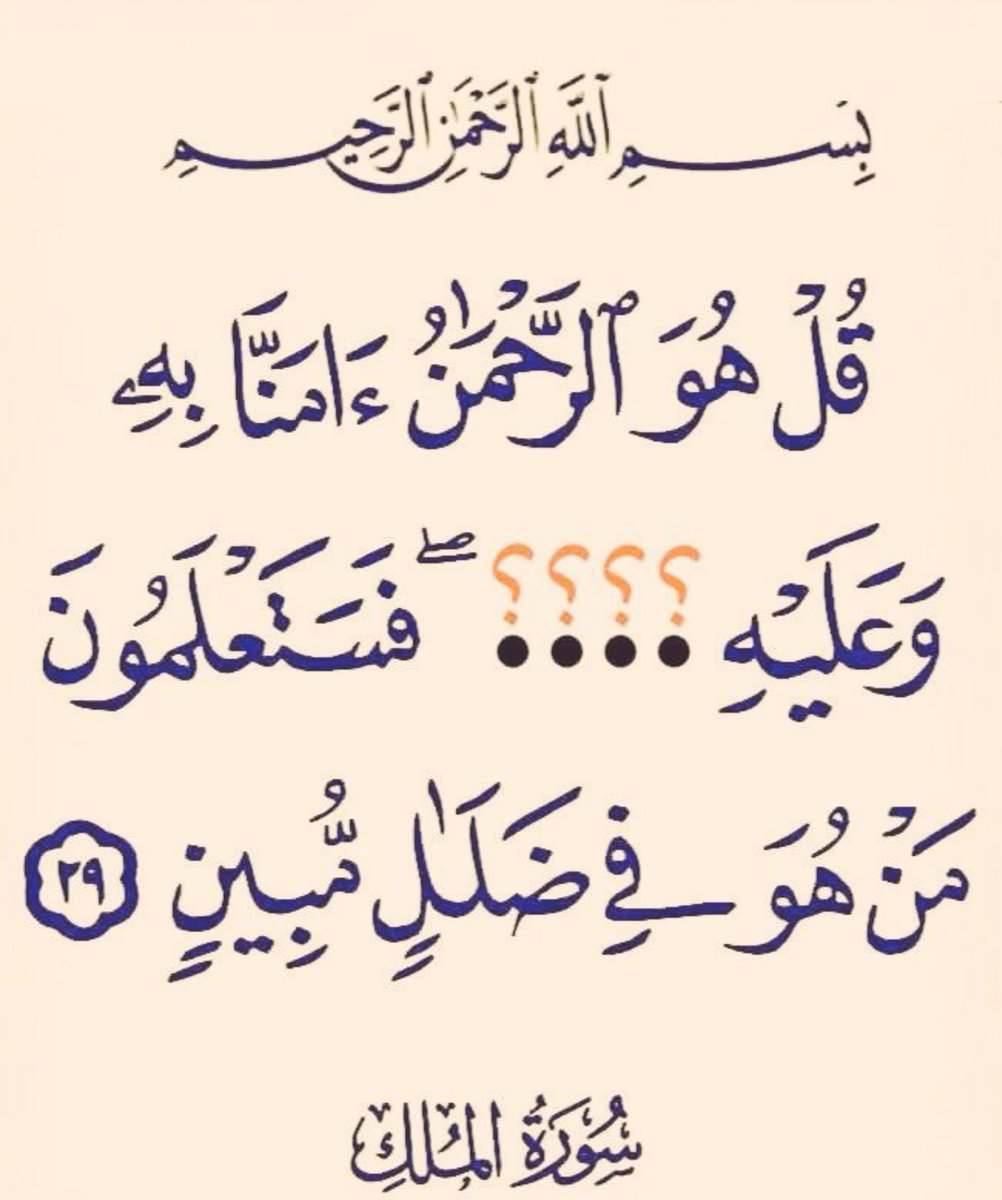 بِسۡمِ ٱللَّهِ ٱلرَّحۡمَٰنِ ٱلرَّحِيمِ
قُلۡ هُوَ ٱلرَّحۡمَٰنُ ءَامَنَّا بِهِۦ
وَعَلَيۡهِ ؟؟؟؟ •••• ۖ فَسَتَعۡلَمُونَ
مَنۡ هُوَ فِي ضَلَٰلٖ مُّبِينٖ ٢٩
سُورَةُ المُلكِ